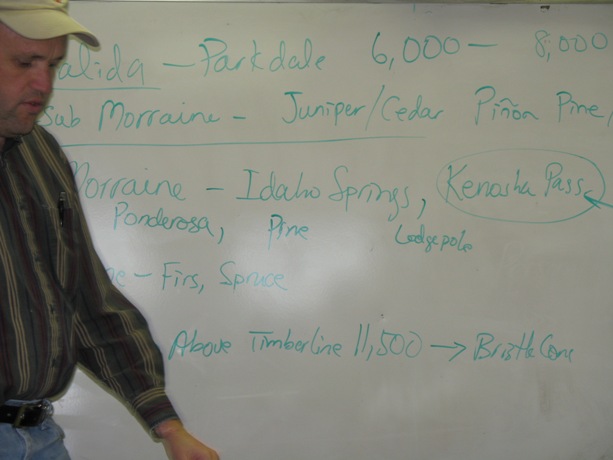 alida — Parkdale 6,000 — 8,000
Sub Morraine - Juniper/Cedar Piñon Pine/
Morraine - Idaho Springs, Kenosha Pass
Ponderosa, Pine Lodgepole
ne - Firs, Spruce
Above Timberline 11,500 → Bristle Cone